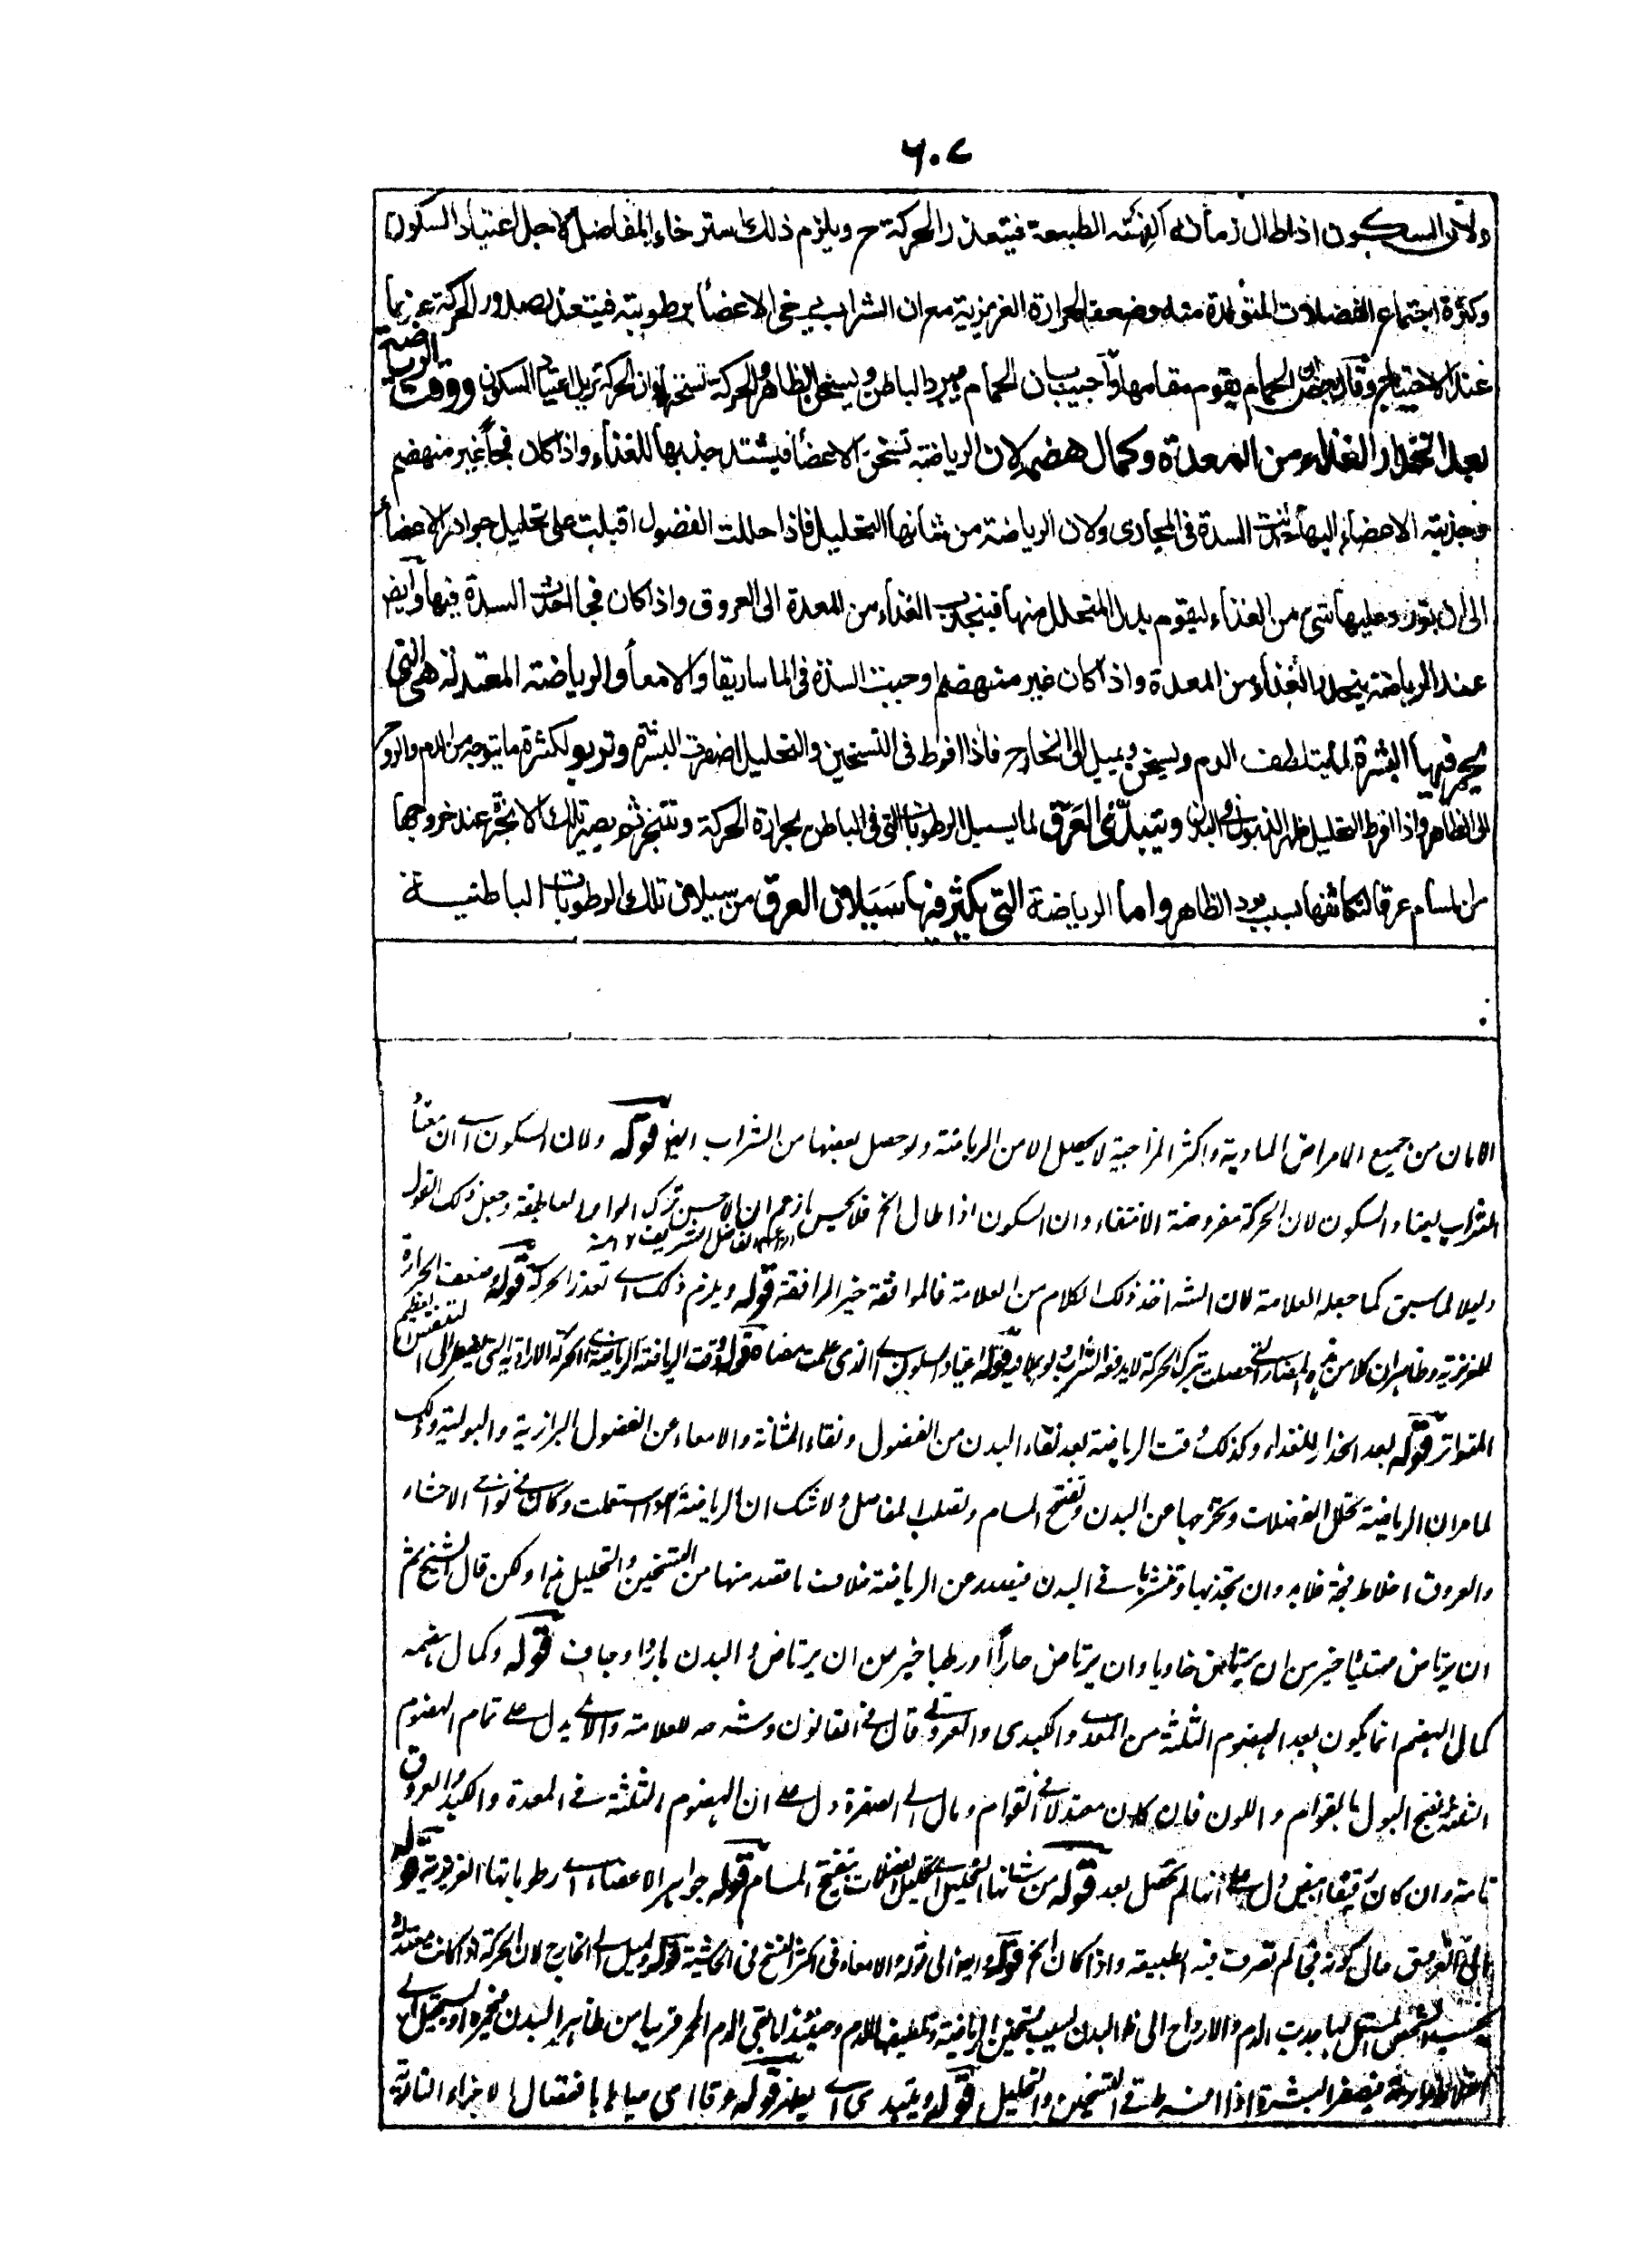 ٦٠٧
ولأن السكون اذا طال زمانه ألفته الطبيعة فيتعذر الحركة ح ويلزم ذلك استرخاء المفاصل لاجل اعتياد السكون
وكثرة اجتماع الفضلات المتولدة منه وضعف الحرارة الغريزية مع ان الشراب يرخى الاعضاء برطوبته فيتعذر صدور الحركة عنها
عند الاحتياج وقال بعض الحمام يقوم مقامها وأجيب بان الحمام يبرد الباطن ويسخن الظاهر والحركة تسخنهما وان الحركة تزيل اعتياد السكون ووقت الرياضة
بعد انحدار الغذاء من المعدة وكمال هضمه لان الرياضة تسخن الاعضاء فيشتد جذبها للغذاء واذا كان فجا غير منهضم
وجذبته الاعضاء اليها حدثت السدة فى المجارى ولان الرياضة من شانها التحليل فاذا حللت الفضول اقبلت على تحليل جواهر الاعضاء
الى ان يتورد عليها شئ من الغذاء ليقوم بدل المتحلل منها فينجذب الغذاء من المعدة الى العروق واذا كان فجا احدث السدة فيها وايضا
عند الرياضة ينحدر الغذاء من المعدة واذا كان غير منهضم اوجبت السدة فى الماساريقا والامعاء والرياضة المعتدلة هى التى
يحمر فيها البشرة لما يتلطف الدم ويسخن ويميل الى الخارج فاذا افرط فى التسخين والتحليل اصفرت البشرة وتربو لكثرة ما يتوجه من الدم والروح
الى الظاهر واذا افرط التحليل ظهر الذبول فى البدن ويتبدئ العرق لما يسيل الرطوبات التى فى الباطن بحرارة الحركة وتتبخر ثم يصير تلك الابخرة عند خروجها
من المسام عرقا لتكاثفها بسبب برد الظاهر واما الرياضة التى يكثر فيها سيلان العرق من سيلان تلك الرطوبات الباطنية
الامان من جميع الامراض المادية واكثر المزاجية لا يحصل الا من الرياضة ولو حصل بعضها من الشراب ايضا قوله ولان السكون اے ان
الشراب والسكون لان الحركة مفروضة الانتفاء وان السكون اذا طال الخ فلا يحس ما زعم ان الاحسن ترك الواو العاطفة وجعل ذلك القول
دليلا لما سبق كما جعله العلامة لان الشه اخذ ذلك الكلام من العلامة فالموافقة خير المرافقة قوله ويلزم ذلك اے تعذر الحركة قوله وضعف الحرارة
الغريزية وظاهر ان كلا من هذه المضار التى حصلت بترك الحركة لا يدفعه الشراب قوله اعتياد السكون اے الذى علمت مضاره قوله ووقت الرياضة الرياضة هى الحركة الارادية التى تضطر الى التنفس العظيم
المتواتر قوله بعد انحدار الغذاء وكذلك وقت الرياضة بعد نقاء البدن من الفضول ونقاء المثانة والامعاء عن الفضول البرازية والبولية وذلك
لما مر ان الرياضة تحلل الفضلات وتخرجها عن البدن وتفتح المسام وتصلب المفاصل ولا شك ان الرياضة لو استعملت وكان فى نواحى الاحشاء
والعروق اخلاط فجة فلا بد وان تجذبها وتنشرها فے البدن فيصدر عن الرياضة خلاف ما قصد منها من التسخين والتحليل هذا ولكن قال الشيخ ثم
ان يرتاض ممتليا خير من ان يرتاض خاويا وان يرتاض حارا او رطبا خير من ان يرتاض والبدن باردا او جاف قوله وكمال هضمه
كمال الهضم انما يكون بعد الهضوم الثلثة من المعدى والكبدى والعروقى قال فى القانون وشرحه للعلامة والذى يدل علے تمام الهضوم
الثلثة نضج البول بالقوام واللون فان كان معتدلا فى القوام ومال الے الصفرة دل علے ان الهضوم الثلثة فے المعدة والكبد والعروق
تامة وان كان رقيقا ابيض دل علے انها لم تحصل بعد قوله من شانها التحليل اے تحليل الفضلات بتفتيح المسام قوله جواهر الاعضاء اے رطوباتها الغريزية قوله
الى العروق حال كونه فجا لم تصرف فيه الطبيعة واذا كان الخ قوله وايضا الى قوله والامعاء فى اكثر النسخ فى الحاشية قوله ويميل الے الخارج لان الحركة اذا كانت معتدلة
بحسب الشخص المستعمل لها جذبت الدم والارواح الى ظاهر البدن بسبب تسخين الرياضة وتلطيفها للدم وحينئذ لا يبقى الدم الاحمر قريبا من ظاهر البدن
فيصفر البشرة اذا افرطت فے التسخين والتحليل قوله ويتبدى اے يظهر قوله عرقا اى مياها بانفصال الاجزاء النارية